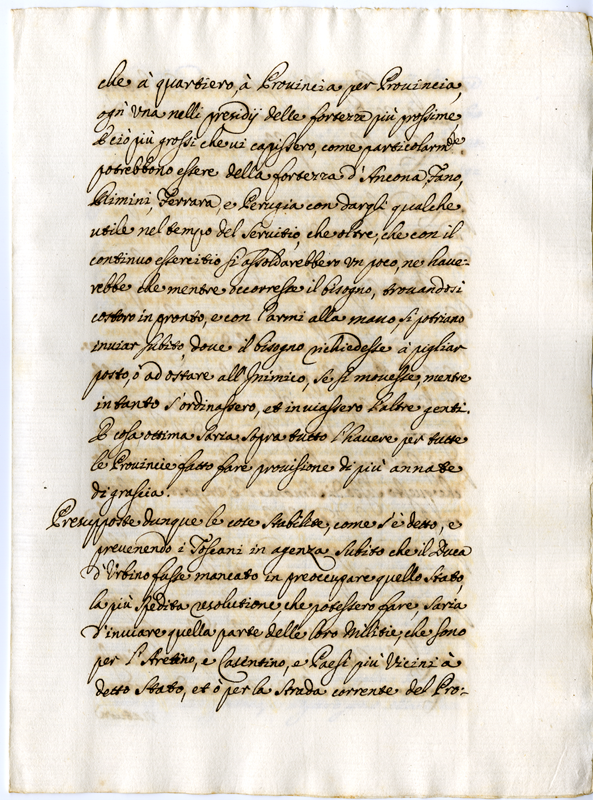 che à quartiero, à Provincia per Provincia,
ogn'una nelli presidij delle fortezze più prossime
e ciò più grossi che vi capissero, come particolarm.te
potrebbono essere della fortezza d'Ancona, Fano,
Rimini, Ferrara, e Perugia con dargli qualche
utile nel tempo del servitio, che oltre, che con il
continuo essercitio si assoldarebbero un poco, ne have-
rebbe che mentre occorresse il bisogno, trovandosi
costoro in pronto, e con l'armi alla mano, si potriano
inviar subito, dove il bisogno richiedesse à pigliar
posto, ò ad ostare all'Inimico, se si movesse, mentre
intanto s'ordinassero, et inviassero l'altre genti.
E cosa ottima saria sopra tutto l'havere per tutte
le Provincie fatto fare provisione di più annate
di grascia.
Presupposte dunque le cose stabilite, come s'è detto, e
prevenendo i Toscani in agenza subito che il Duca
d'Urbino fusse mancato in preoccupare quello Stato,
la più spedita resolutione, che potessero fare, saria
d'inviare quella parte delle loro Militie, che sono
per l'Aretino, e Casentino, e Paesi più vicini à
detto Stato, et ò per la strada corrente del Pro-